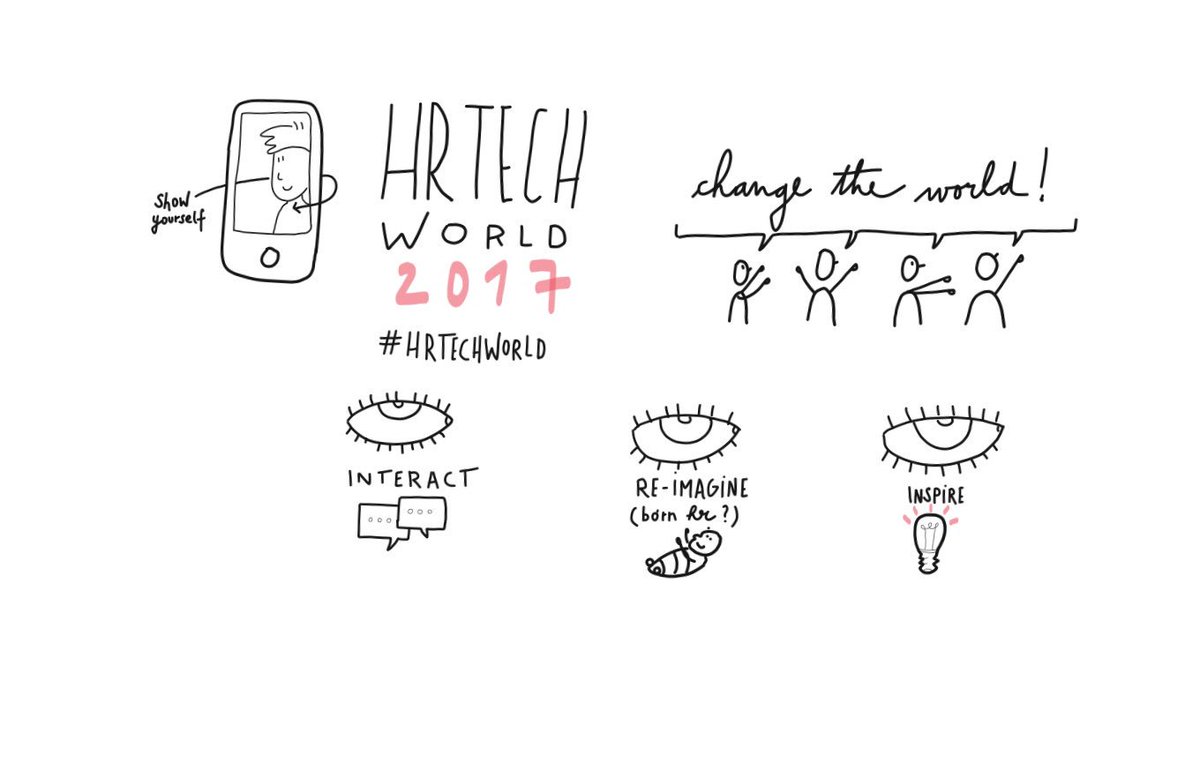 Show
yourself
HRTECH
WORLD
2017
#HRTECHWORLD
change the world!
INTERACT
RE-IMAGINE
(born hr?)
INSPIRE